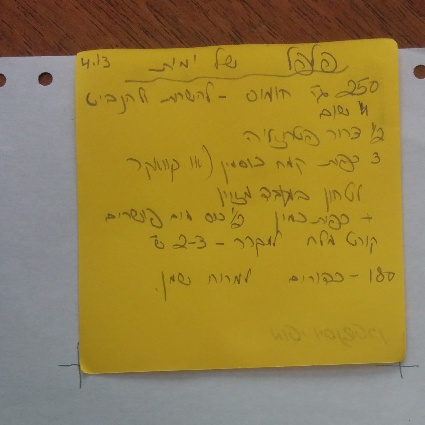 4.13
פלפל של ימית
250 גר' חומוס - להשרות ולהנביט
4 שום
1/2 צרור פטרוזיליה
3 כפות קמח כוסמין (או קוואקר
לטחון במעבד מזון
+ כפית כמין 1/2 כוס מים פושרים
קורט מלח למקרר - 2-3 ש'
180 - כדורים למרוח שמן.